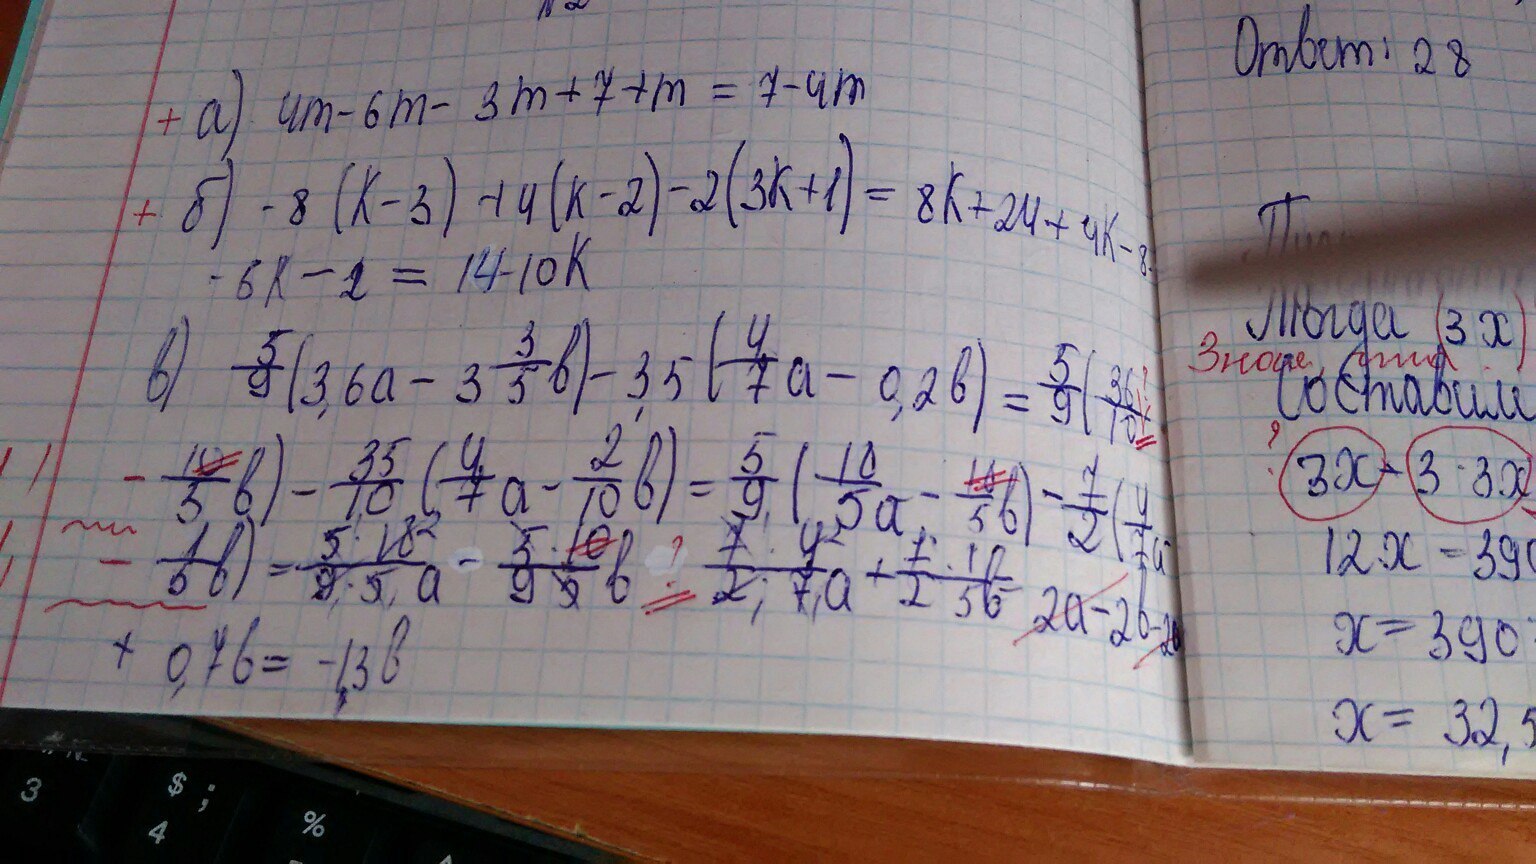 а) 4m-6m-3m+7+m=7-4m
б) -8(к-3)+4(к-2)-2(3к+1)=8к+24+4к-8-
-6к-2=14-10к
в) 5/9(3,6а-3 3/5в)-3,5(4/7а-0,2в)=5/9(36/10
-18/5в)-35/10(4/7а-2/10в)=5/9(18/5а-18/5в)-7/2(4/7а
-1/5в)=5·18²/9·5а-5·18/9·5в ? 7·4²/2·7а+7·1в/2·5в 2а-2в-2а
+0,7в=-1,3в
Ответ: 28
Тогда (3х)
Составим
? 3х+3·3х
12х=390
х=390:
х=32,5
3
$ ;
4
%